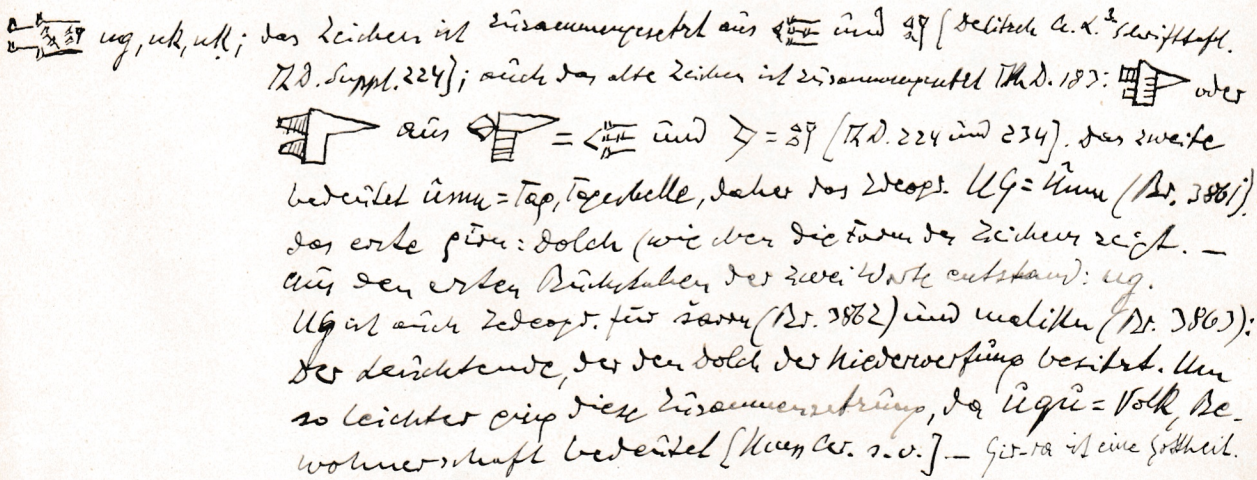 ug, uk, uḳ; das Zeichen ist zusammengesetzt aus 𒄊 und 𒌓 [Delitzsch A. L.³ Schrifttafl.
Th. D. Suppl. 224]; auch das alte Zeichen ist zusammengesetzt Th. D. 183: oder
aus = 𒄊 und = 𒌓 [Th. D. 224 und 234]. Das zweite
bedeutet ūmu = Tag, Tageshelle, daher das Ideogr. UG = Ūmu (Br. 3861).
das erste gíru: Dolch (wie eben die Form des Zeichens zeigt. —
Aus den ersten Buchstaben der zwei Worte entstand: ug.
UG ist auch Ideogr. für šarru (Br. 3862) und maliku (Br. 3863):
Der Leuchtende, der den Dolch der Niederwerfung besitzt. Um
so leichter ging diese Zusammensetzung, da ūgū = Volk, Be-
wohnerschaft bedeutet [s. v.] — Gir-ra ist eine Gottheit.